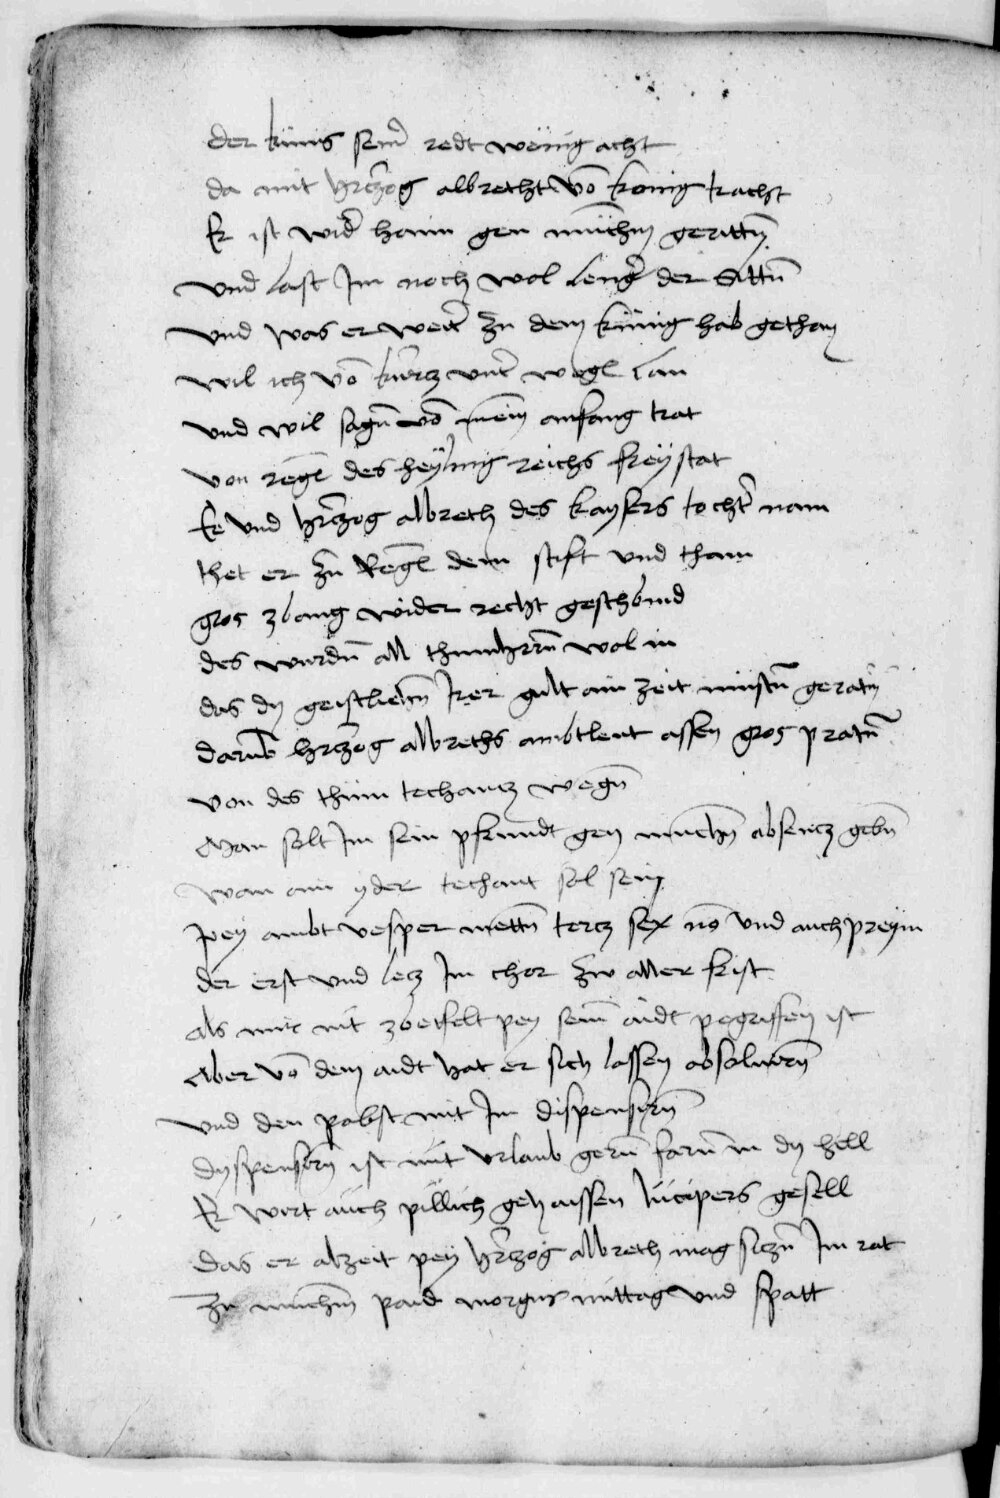 der künig seiner redt wenig acht
da mit hertzog albretht võ konig tracht
Er ist wider haim gen münichen geritten
Und last Jm noch wol lenger der Sittñ
Und was er weiter zu dem künig hab gethan
wil ich võ kürcz unter wegl lan
Und wil sagñ võ meim anfang trat
von regñl des heyling reichs freystat
Ee Und hertzog albreth des kaysers tochter nam
thet er zu Regñl dem stift und tham
gros zbang wider recht geschbind
des wurdñ all thumherrñ wol in
das dy geistlichen Jrer gult ain zeit mustñ geratñ
darumb hertzog albreths ambtleut assen gros pratñ
von des thum techantz wegñ
Man solt Jm sein pfrundt gen munchñ absencz gebñ
wan ain yder techant sol sein
pey ambt vesper mettñ tercz sex no Und auch preym
der erst und lecz Jm chor zw aller frist
als mir nit zbeifelt pey seim aidt pegriffen ist
Aber võ dem aidt hat er sich lassen absolvirñ
Und den pabst mit Jm dispensirñ
dyspensirñ ist mit Urlaub gerñ farñ in dy hell
Er wirt auch pillich gehaissen lucipers gesell
das er alzeit pey hertzog albreth mag siczñ Jm rat
zu munchñ paid morgns mittag und spatt